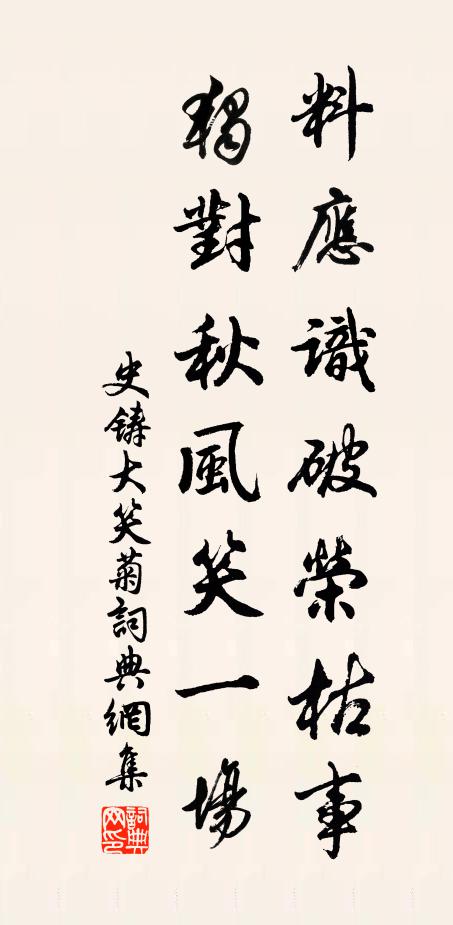 料應識破榮枯事
獨對秋風笑一場
史鑄大笑菊詞典網集
詞典網印